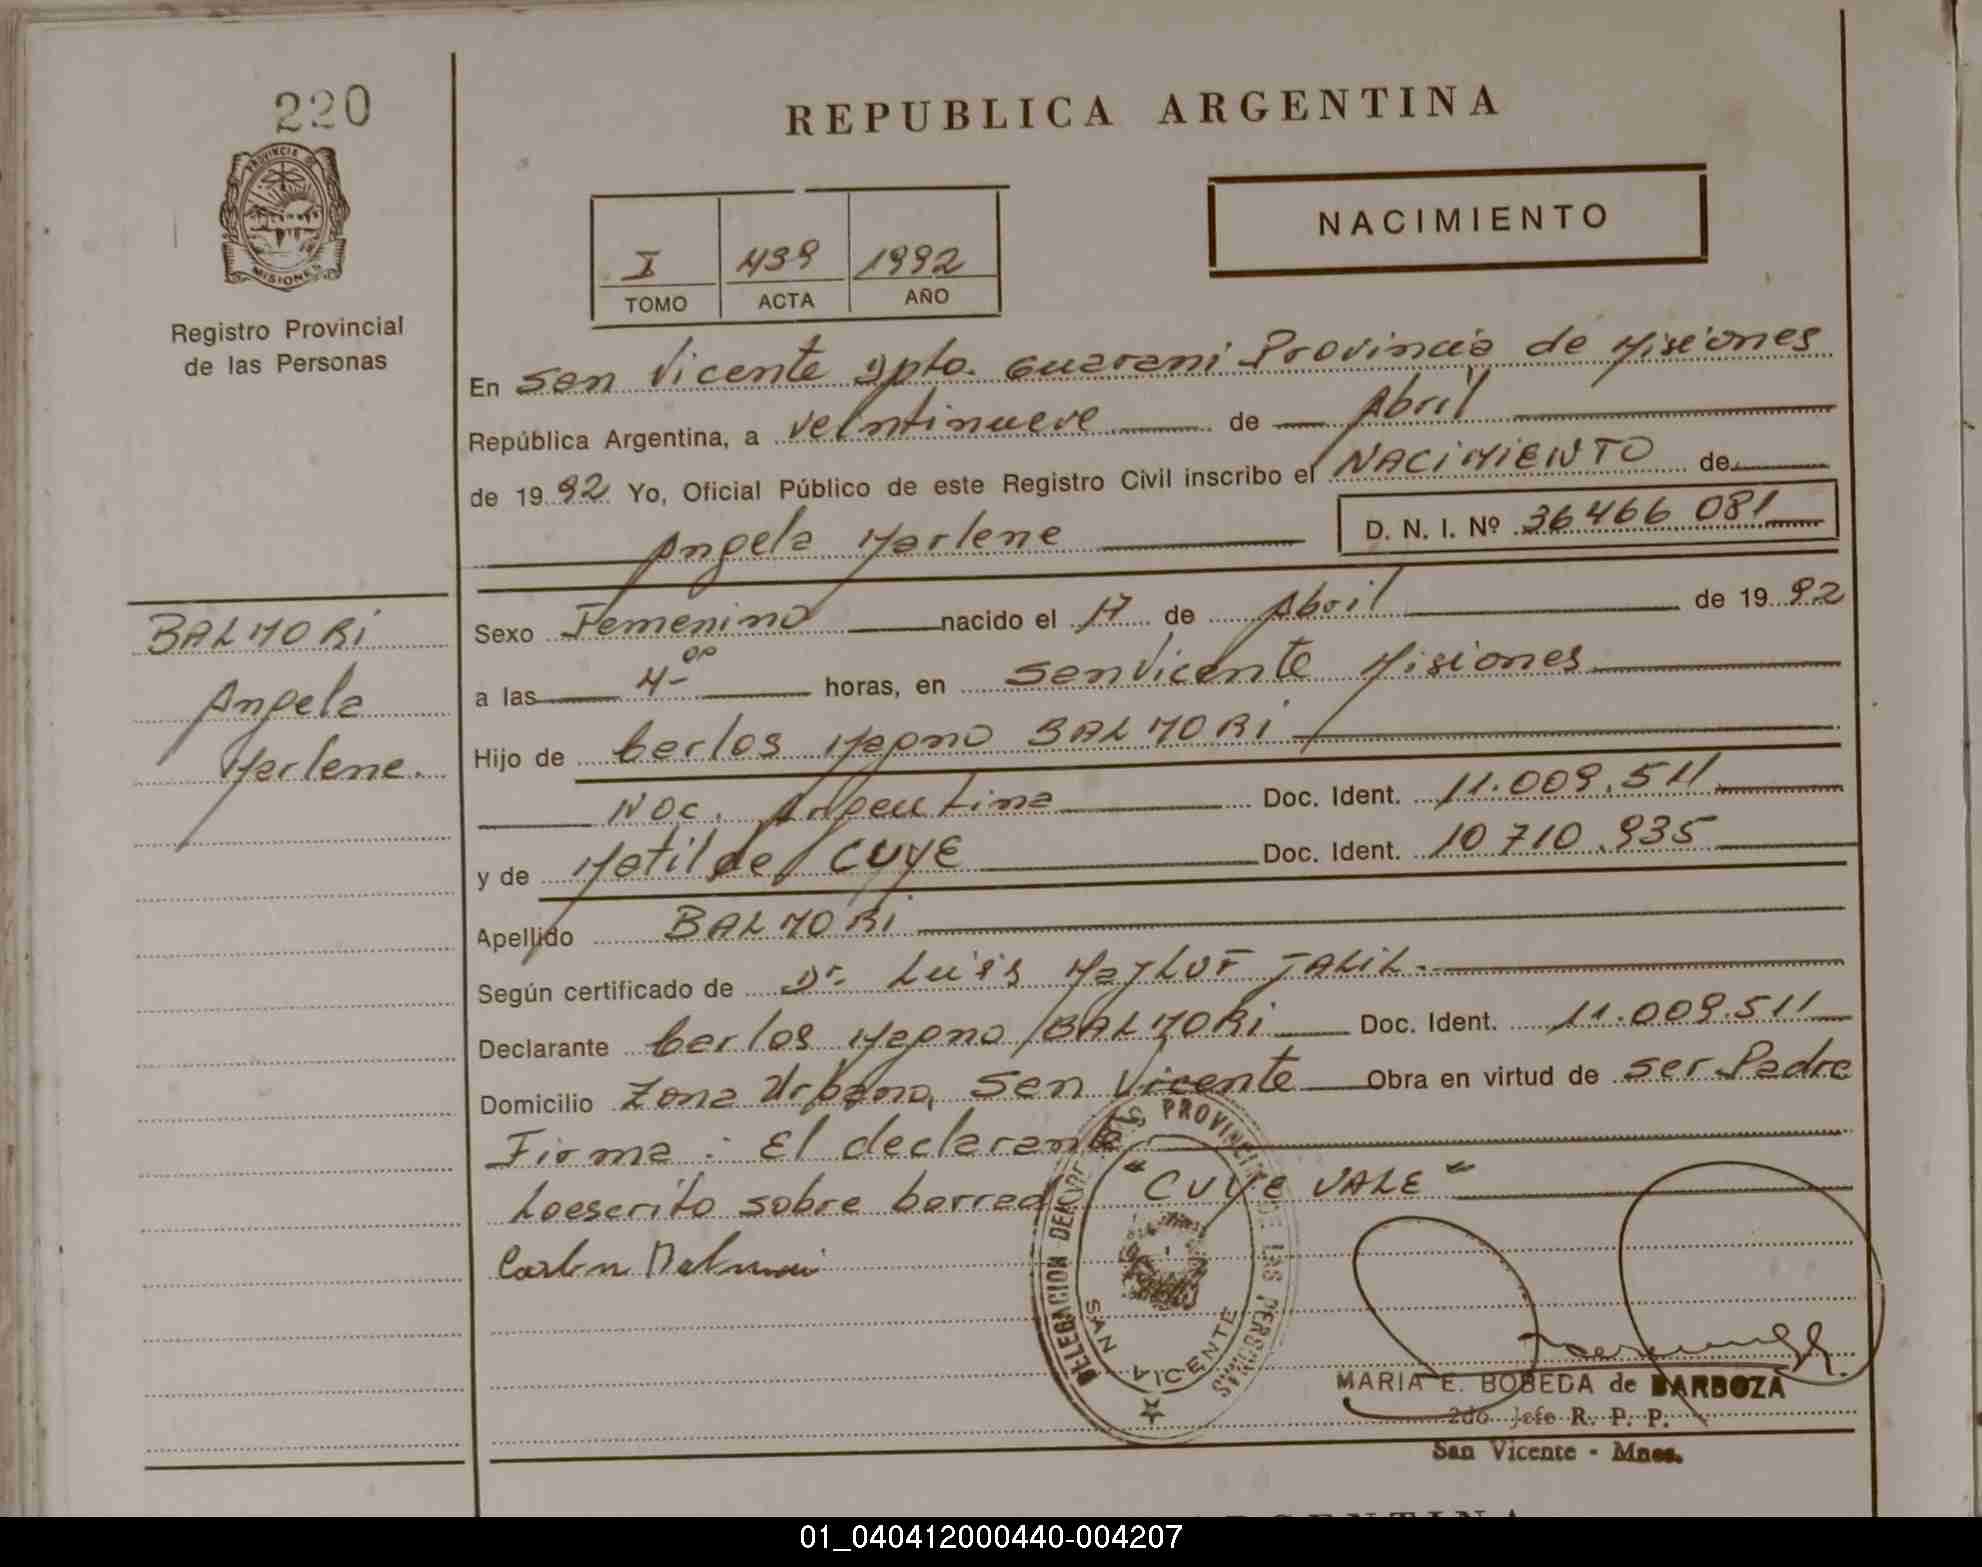 220
PROVINCIA DE
MISIONES
Registro Provincial
de las Personas
REPUBLICA ARGENTINA
I 439 1992
TOMO ACTA AÑO
NACIMIENTO
En San Vicente Dpto. Guarani Provincia de Misiones
República Argentina, a veintinueve de Abril
de 1992 Yo, Oficial Público de este Registro Civil inscribo el NACIMIENTO de
Angela Marlene D. N. I. Nº 36466 081
BALMORI
Angela
Marlene.
Sexo Femenino nacido el 17 de Abril de 1992
a las 4-00 horas, en San Vicente Misiones
Hijo de Carlos Magno BALMORI
Nac. Argentina Doc. Ident. 11.009.511
y de Matilde CUYE Doc. Ident. 10 710.935
Apellido BALMORI
Según certificado de Dr. Luis MayLUF JALIL.
Declarante Carlos Magno BALMORI Doc. Ident. 11.009.511
Domicilio Zona Urbana, San Vicente Obra en virtud de ser Padre
Firma: El declarante
Loescrito sobre borrad "CUYE VALE"
DELEGACION PROVINCIAL DE LAS PERSONAS
SAN VICENTE
MARIA E. BOBEDA de BARBOZA
2do Jefe R. P. P.
San Vicente - Mnes.
01_040412000440-004207